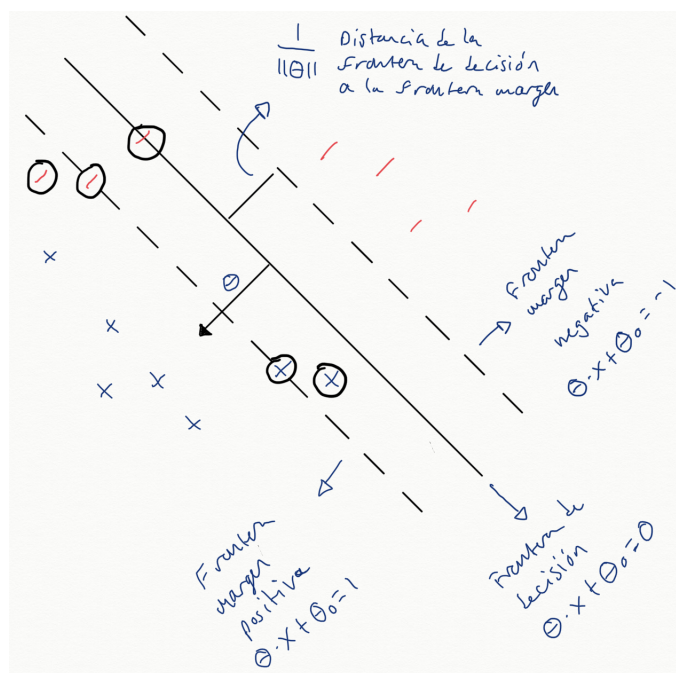 1 Distancia de la
||θ|| frontera de decisión
a la frontera margen
Frontera
margen
negativa
θ·x+θ₀=-1
θ
Frontera
margen
positiva
θ·x+θ₀=1
Frontera de
decisión
θ·x+θ₀=0